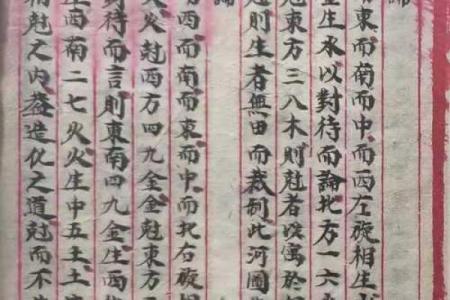 論
東而南而中而西左旋相生
金生水以對待而論北方一六
尅東方三八木則尅者以寓於
尅則生者無田而裁制此河圖
論
西而南而東而中而北右旋相
火火尅西方四九金金尅東方
對待而言則東南四九金生西
生西南二七火火生中五土土
尅之内葢造化之道尅而不